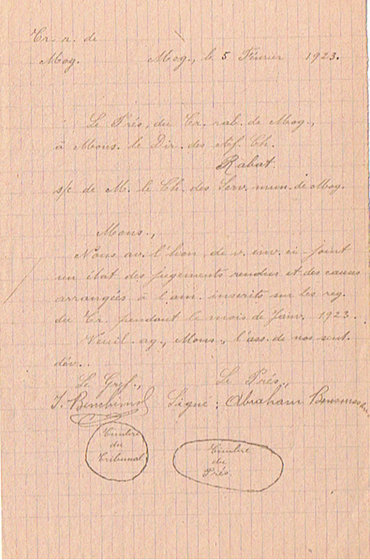 Tr. r. de
Mog. Mog., le 5 Février 1923.
Le Prés. du Tr. rab. de Mog.,
à Mons. le Dir. des Af. Ch.
Rabat
s/c de M. le Ch. des Serv. mun. de Mog.
Mons.,
Nous av. l'hon. de v. env. ci-joint
un état des jugements rendus et des causes
arrangées à l'am. inscrits sur les reg.
du Tr. pendant le mois de Janv. 1923.
Veuil. ag., Mons., l'ass. de nos sent.
dév..
Le Gref., Le Prés.,
Signé: Abraham
Timbre
du
Tribunal
Timbre
du
Prés.